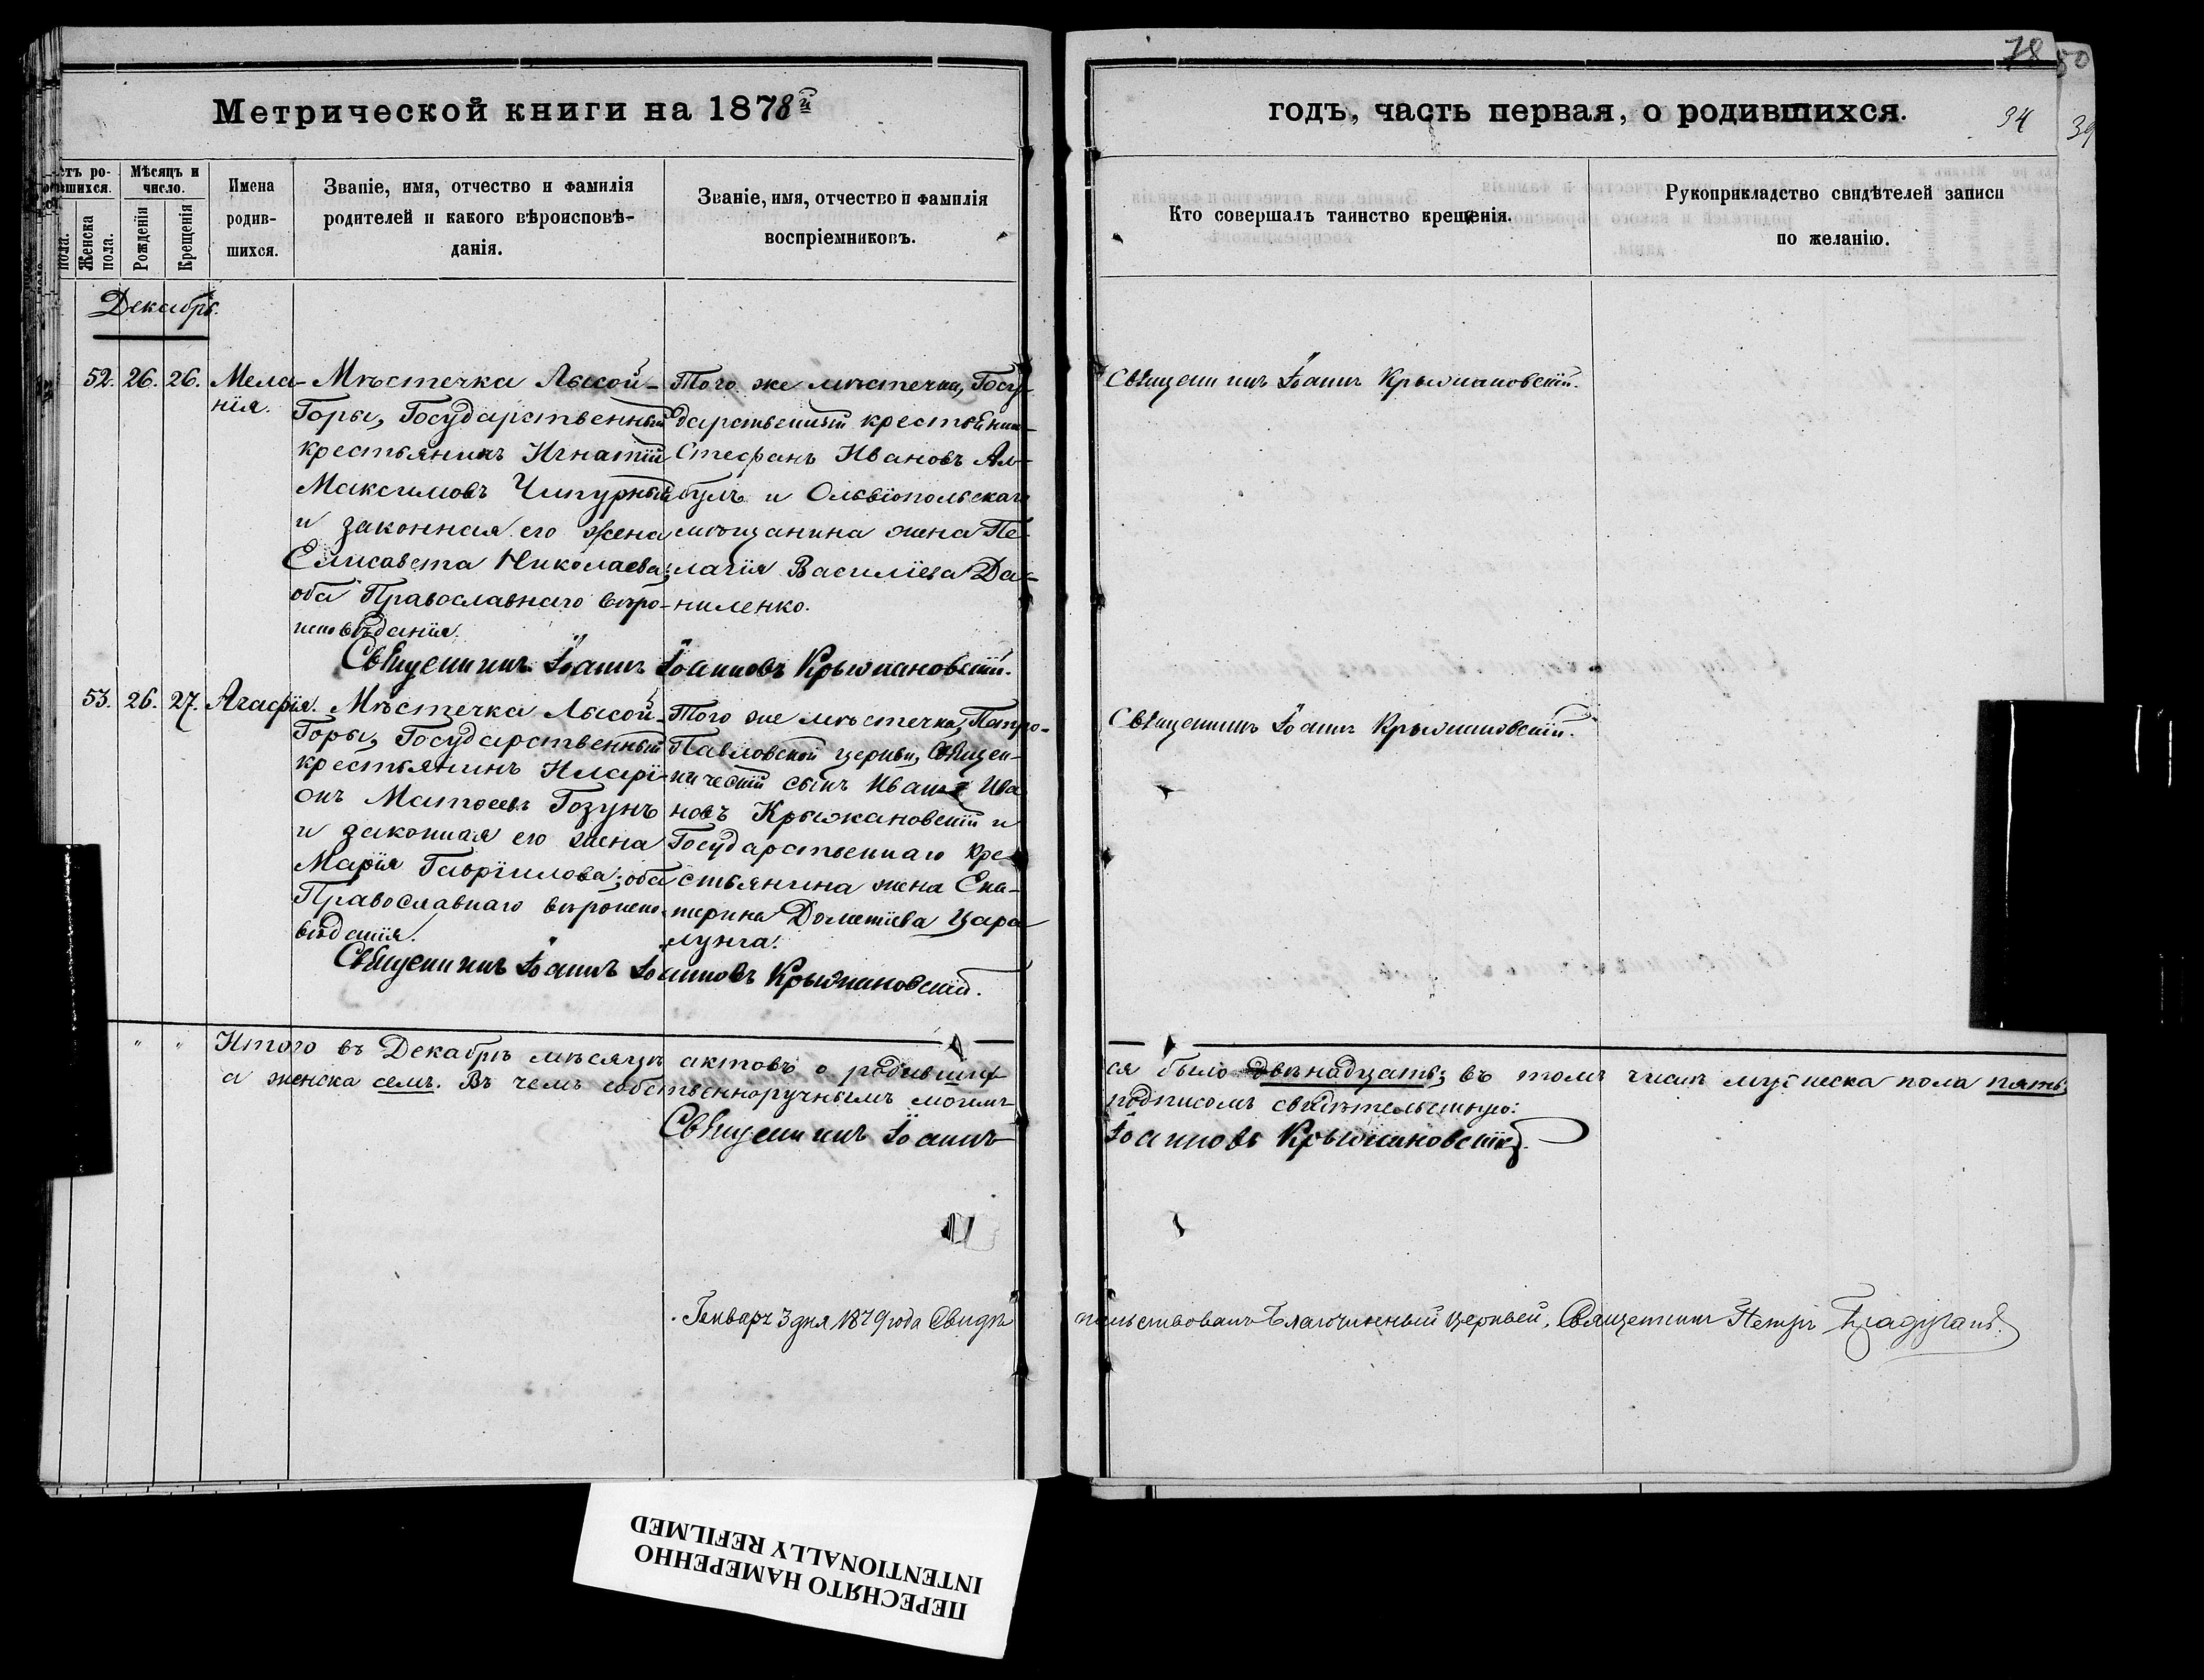 78 50
Метрической книги на 1878й
годъ, часть первая, о родившихся.
34 39
Мѣсяцъ и число.
Женска пола.
Рожденія
Крещенія
Имена родив-шихся.
Званіе, имя, отчество и фамилія
родителей и какого вѣроисповѣ-
данія.
Званіе, имя, отчество и фамилія
воспріемниковъ.
Кто совершалъ таинство крещенія.
Рукоприкладство свидѣтелей записи
по желанію.
Декабрь.
52. 26. 26. Мела-
нія.
Мѣстечка Лысой-
Горы, Государственный
крестьянинъ Игнатій
Максимовъ Чипурный
и законная его жена
Елисавета Николаева;
оба Православнаго вѣро-
исповѣданія.
Того же мѣстечка, Госу-
дарственный крестьянин
Стефанъ Ивановъ Ал-
булъ и Ольвіопольскаго
мѣщанина жена Пе-
лагія Василіева Да-
ниленко.
Священникъ Іоаннъ Крыжановскій.
Священникъ Іоаннъ Іоанновъ Крыжановскій.
53. 26. 27. Агафія.
Мѣстечка Лысой-
Горы, Государственный
крестьянинъ Иларі-
онъ Матѳеевъ Гозунъ
и законная его жена
Марія Гавріилова; оба
Православнаго вѣроиспо-
вѣданія.
Того же мѣстечка, Петро-
Павловской церкви, Священ-
ническій сынъ Иванъ Ива
новъ Крыжановскій и
Государственнаго кре-
стьянина жена Ека-
терина Дометіева Цара
лунга.
Священникъ Іоаннъ Крыжановскій.
Священникъ Іоаннъ Іоанновъ Крыжановскій.
" " Итого въ Декабрѣ мѣсяцѣ актовъ о родивших
ся было двѣнадцать; въ томъ числѣ мужеска пола пять
а женска семь. Въ чемъ собственноручнымъ моимъ
подписомъ свидѣтельствую:
Священникъ Іоаннъ
Іоанновъ Крыжановскій.
Генваря 3 дня 1879 года Свидѣ
тельствовалъ Благочинный церквей, Священникъ Петръ
ПЕРЕСНЯТО НАМЕРЕННО
INTENTIONALLY REFILMED